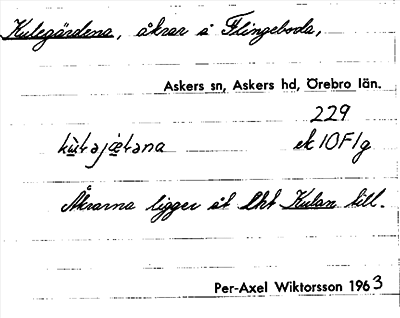 Kulegärdena, åkrar i Flingeboda,
Askers sn, Askers hd, Örebro län.
229
ek 10F1g
Åkrarna ligger åt lht Kulan till.
Per-Axel Wiktorsson 1963